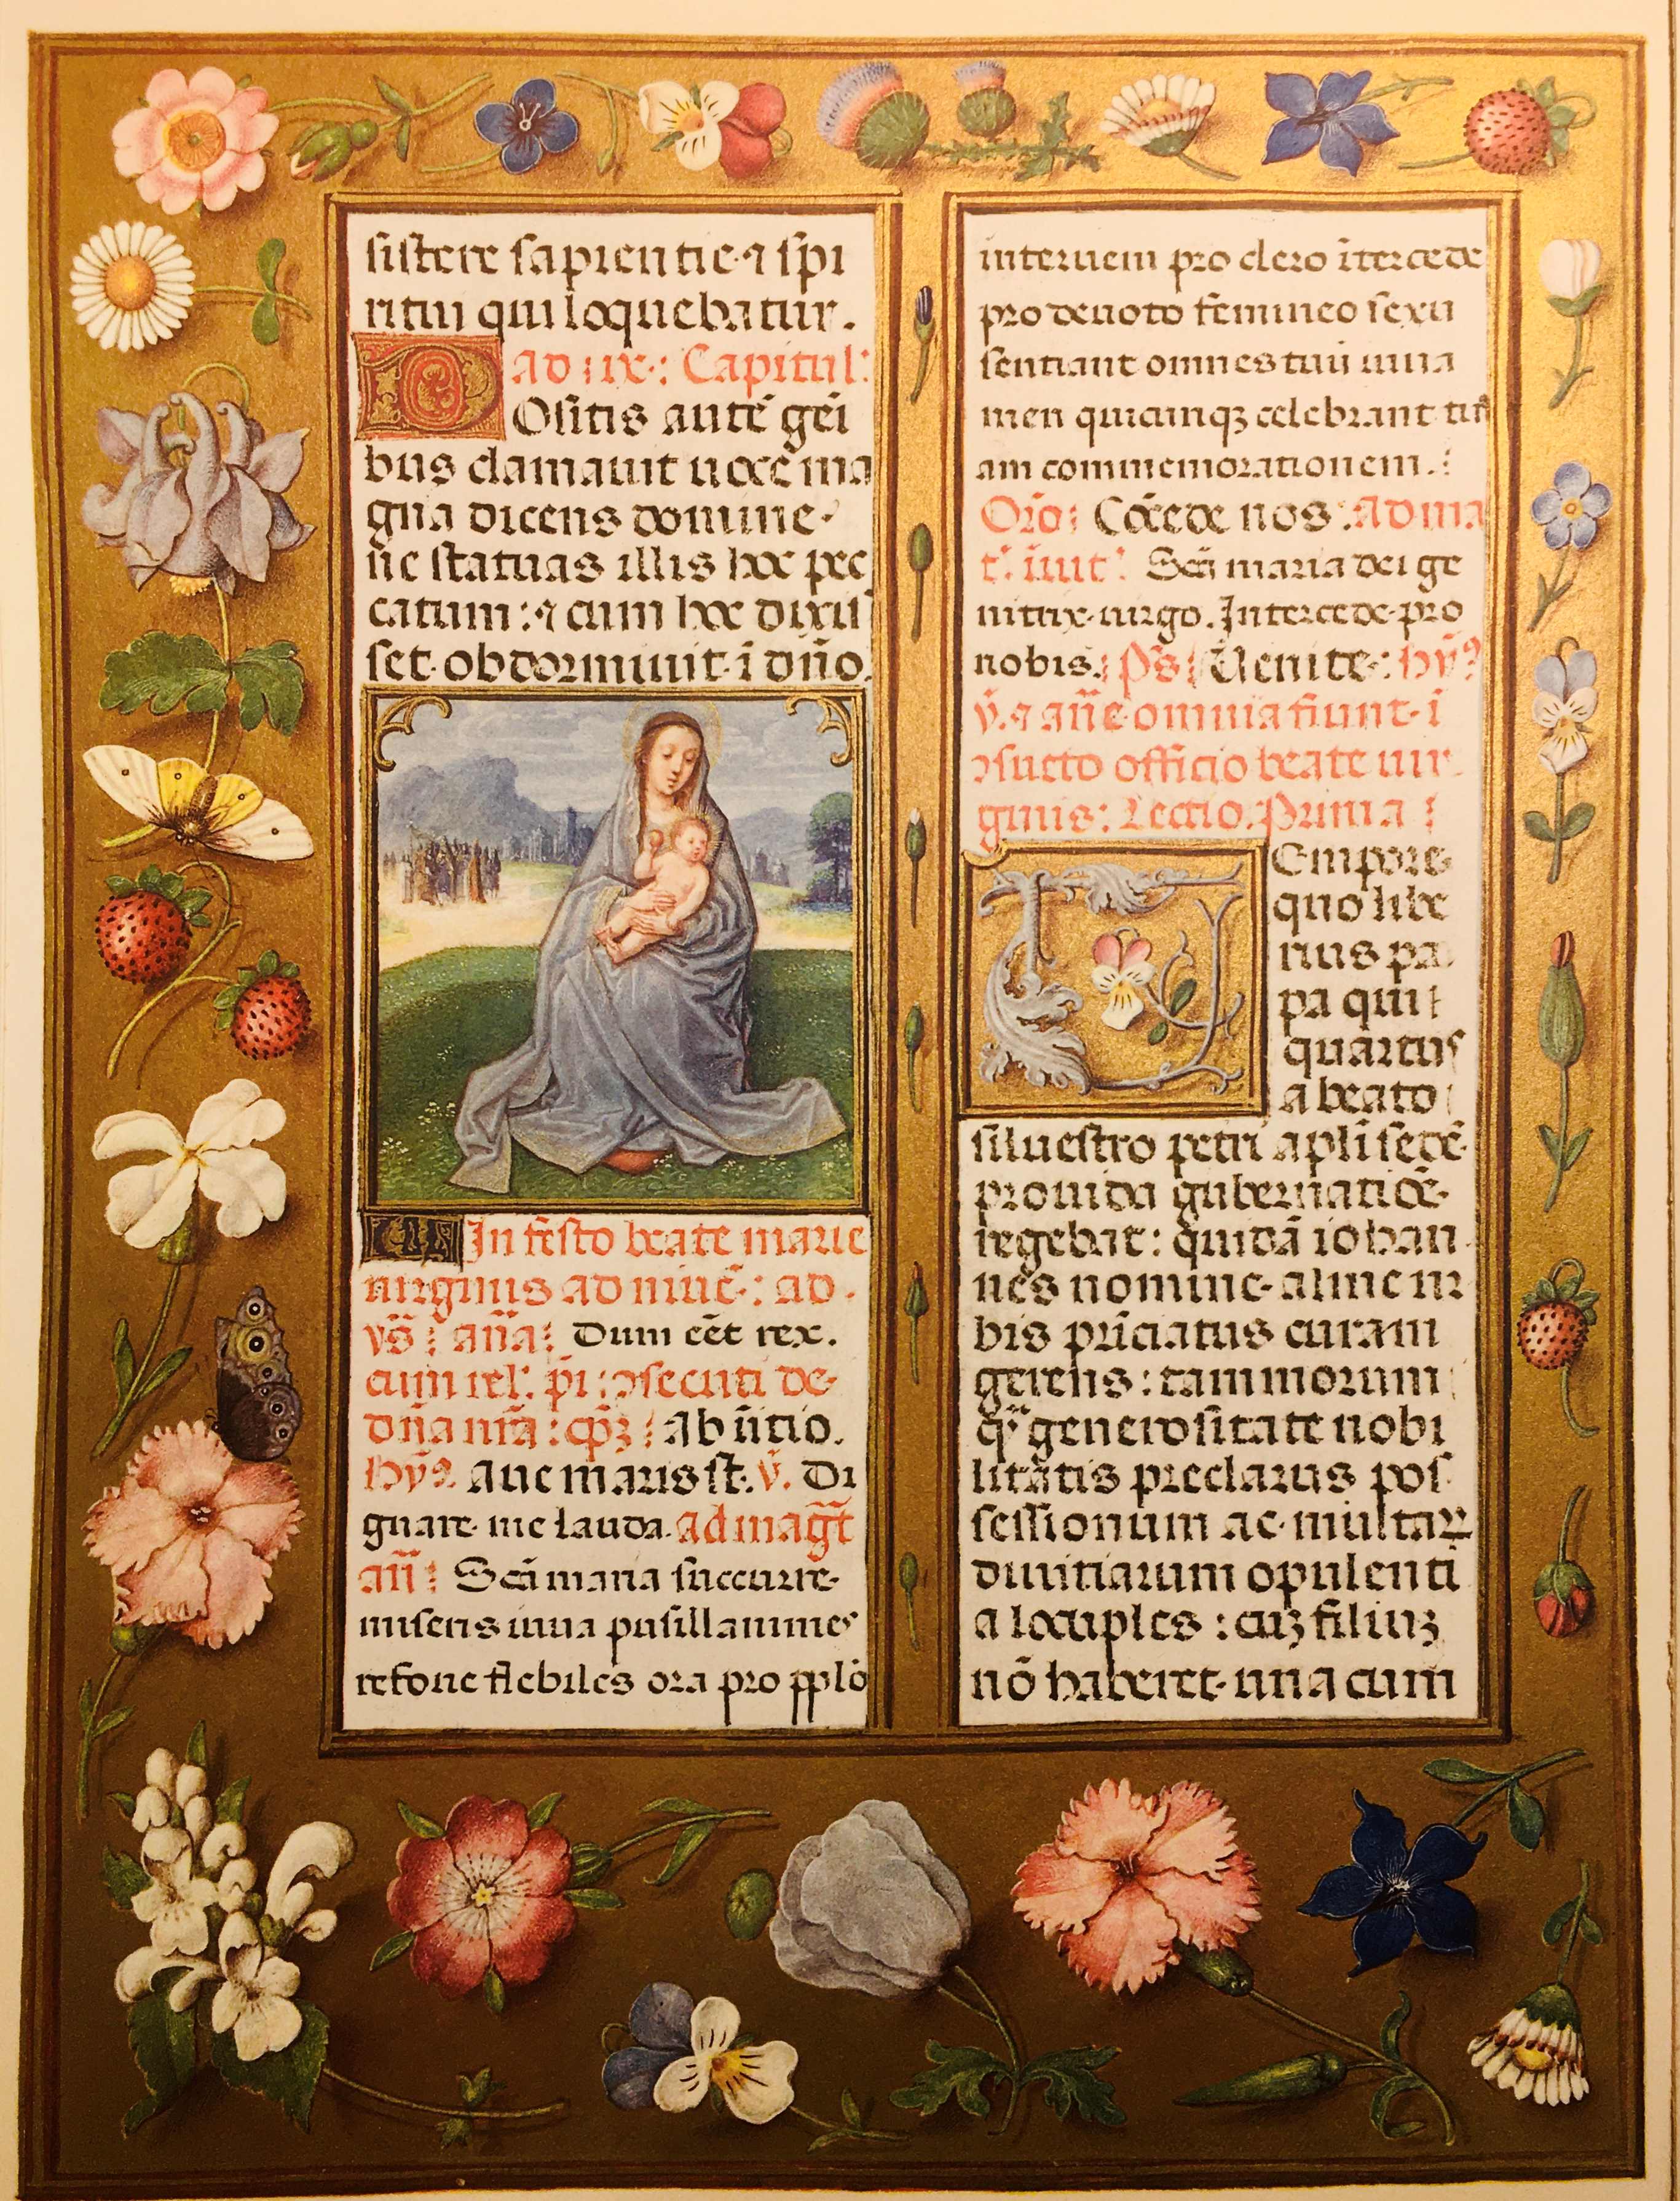 sistere sapientie ⁊ spi
ritui qui loquebatur.
ad ix: Capitul:
POsitis autē gēi
bus clamavit uoce ma
gna dicens domine
ne statuas illis hoc pec
catum: ⁊ cum hoc dixis
set obdormiuit ī dn̄o.
In festo beate marie
uirginis ad niue: ad
vs̄: an̄a: Dum eēt rex.
cum rel. p̄i: ↄsecuti de
dn̄a nr̄a: cp̄ꝫ: Ab ītio.
hy̅ꝰ. Aue maris st. v̄. Di
gnare me lauda. ad mag̅t
an̄: Scā maria succurre
miseris iuua pusillanimes
refoue flebiles ora pro pplo
interueni pro clero ītercede
pro deuoto femineo sexu
sentiant omnes tuū iuua
men quicūnqꝫ celebrant tuā
am commemorationem.
Orō: Cōcede nos: ad ma
t. īuit. Scā maria dei ge
nitrix uirgo. Intercede pro
nobis. Ps̄ Uenite: hy̅ꝰ
v̄. ⁊ an̄e omnia fiunt ī
ↄsueto officio beate uir
ginis: Lectio. Prima
TEmpore
quo libe
rius pa
pa qui
quartus
a beato
siluestro petri apl̄i sedē
prouida gubernatiōe
regebat: quidā iohan
nes nomine alme ur
bis prīciatus curam
gerens: tam morum
qͣ generositate nobi
litatis preclarus pos
sessionum ac multaꝝ
diuitiarum opulenti
a locuples: cūꝫ filiuꝫ
nō haberet una cum